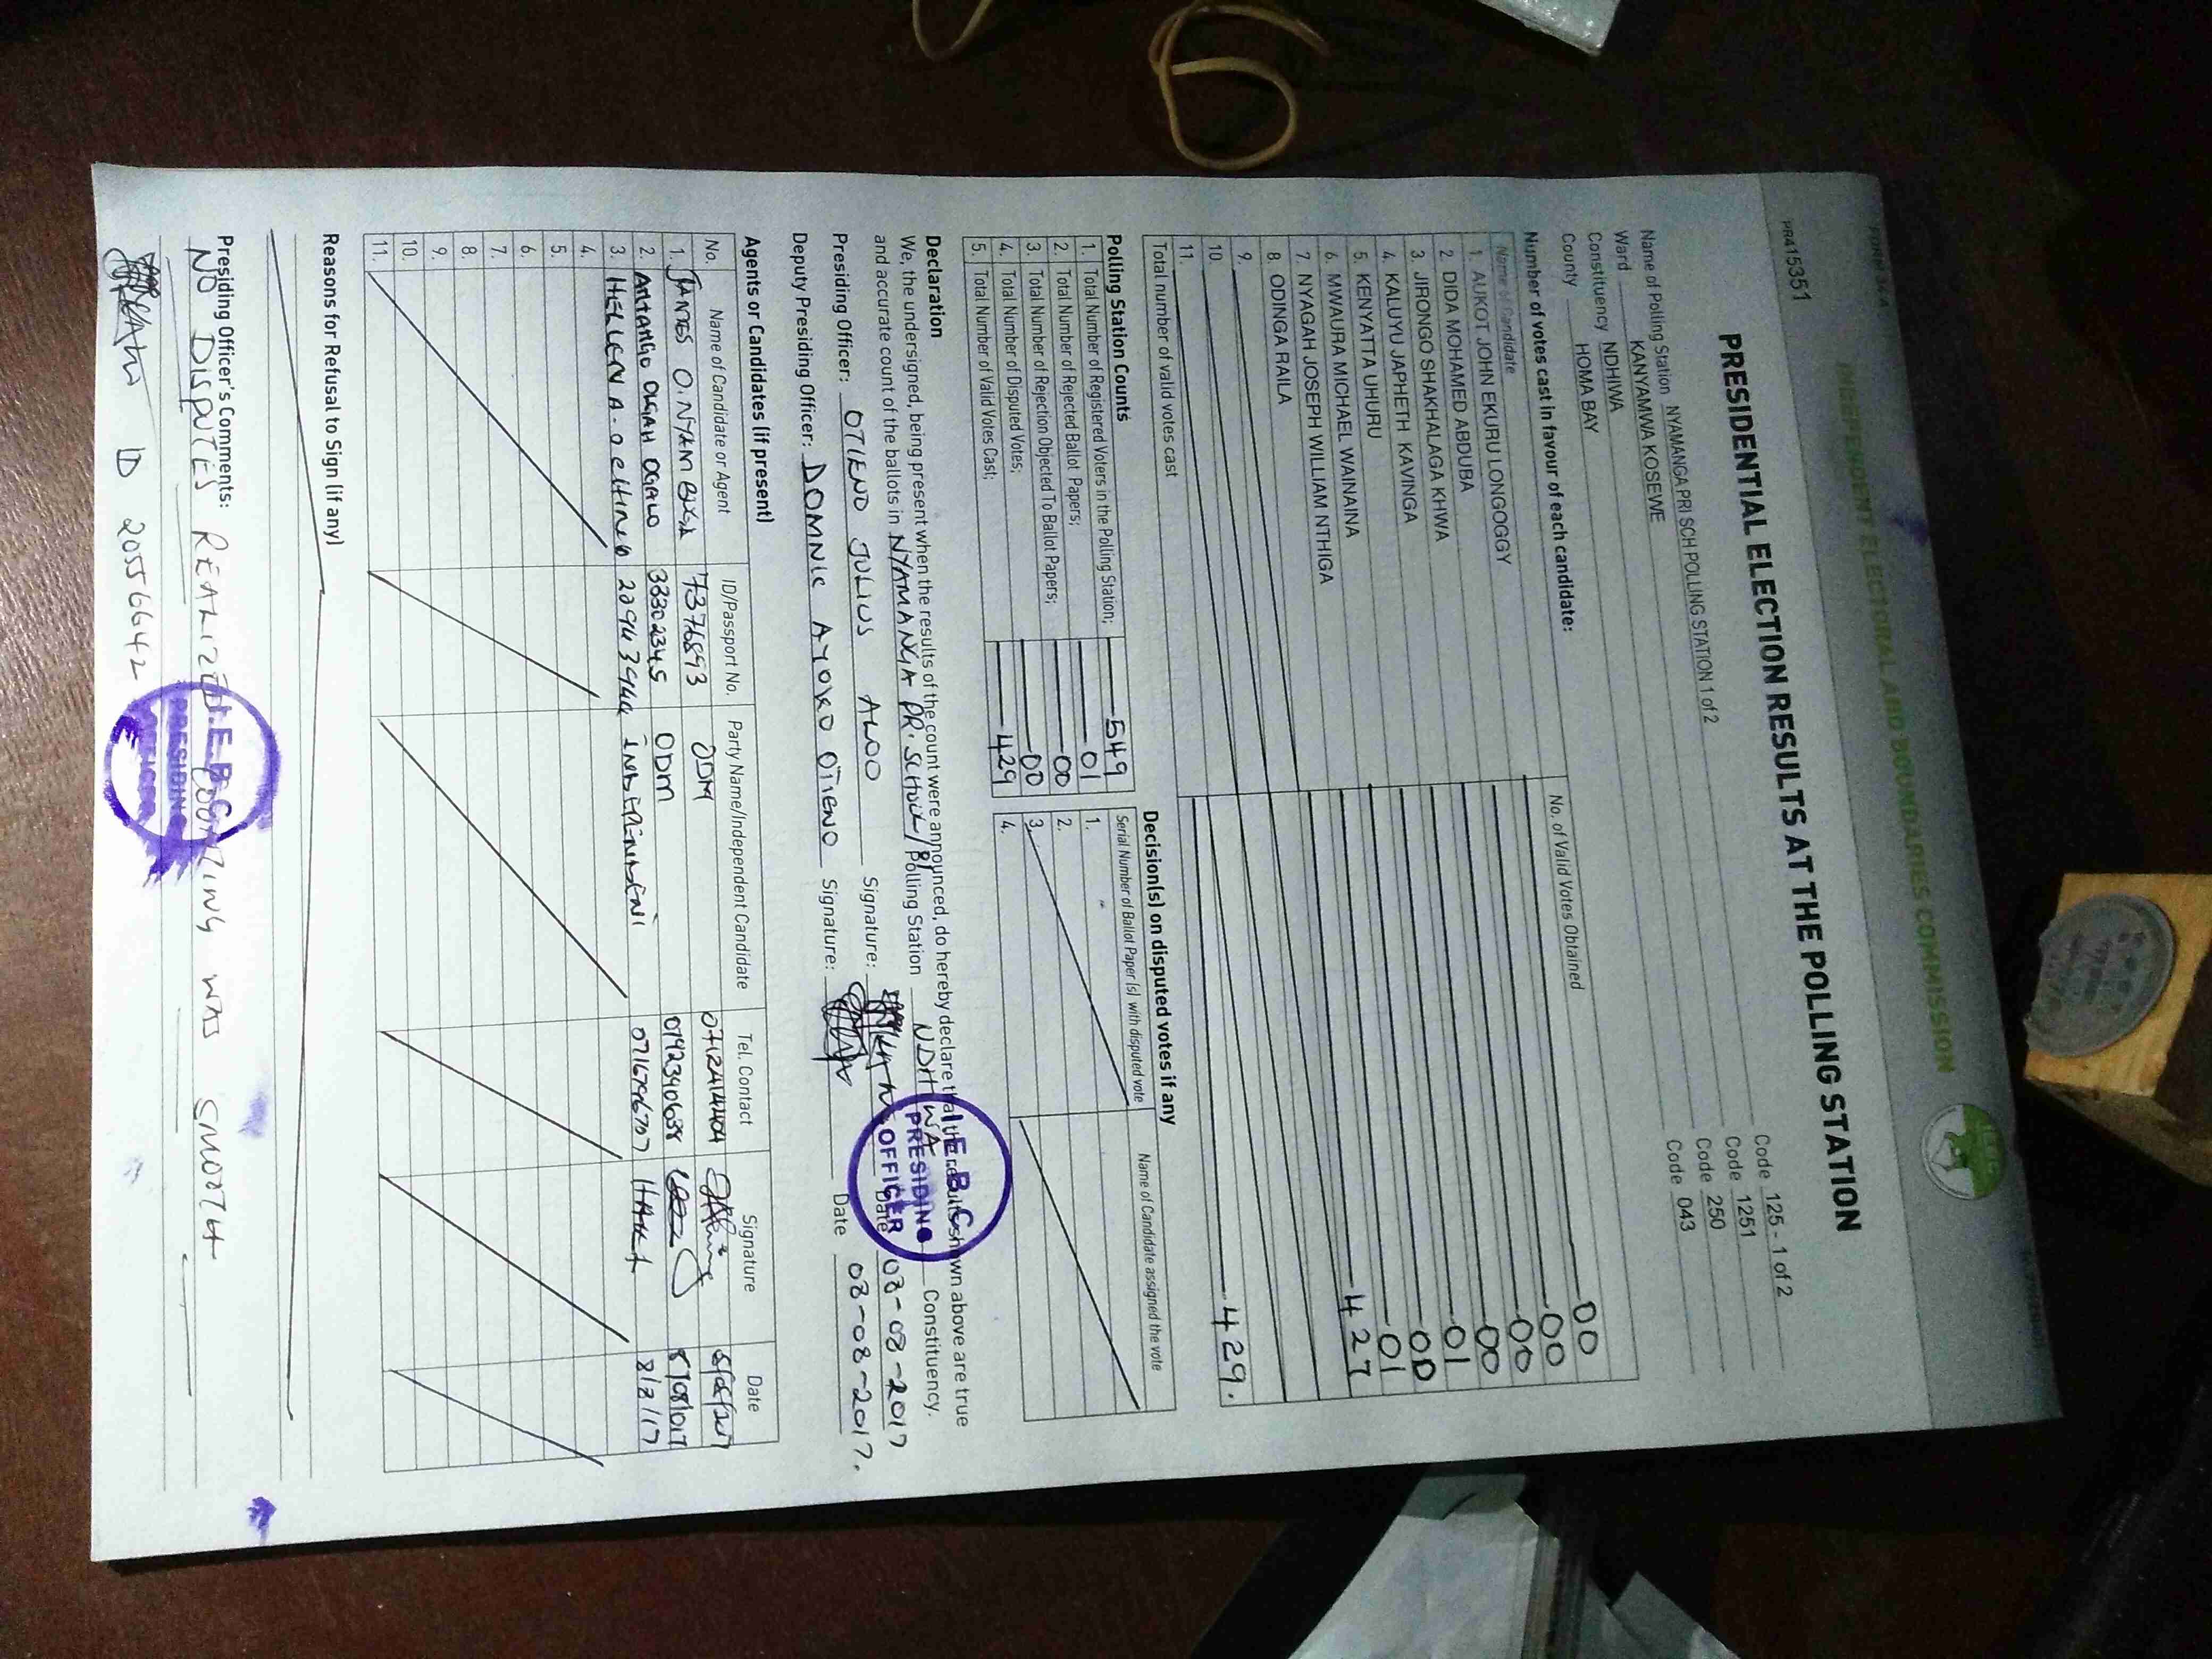 FORM 34 A
INDEPENDENT ELECTORAL AND BOUNDARIES COMMISSION
PR415351
PRESIDENTIAL ELECTION RESULTS AT THE POLLING STATION
Name of Polling Station NYAMANGA PRI SCH POLLING STATION 1 of 2 Code 125 - 1 of 2
Ward KANYAMWA KOSEWE Code 1251
Constituency NDHIWA Code 250
County HOMA BAY Code 043
Number of votes cast in favour of each candidate:
Name of Candidate No. of Valid Votes Obtained
1. AUKOT JOHN EKURU LONGOGGY 00
2. DIDA MOHAMED ABDUBA 00
3. JIRONGO SHAKHALAGA KHWA 00
4. KALUYU JAPHETH KAVINGA 00
5. KENYATTA UHURU 01
6. MWAURA MICHAEL WAINAINA 00
7. NYAGAH JOSEPH WILLIAM NTHIGA 01
8. ODINGA RAILA 427
9.
10.
11.
Total number of valid votes cast 429.
Polling Station Counts
1. Total Number of Registered Voters in the Polling Station; 549
2. Total Number of Rejected Ballot Papers; 01
3. Total Number of Rejection Objected To Ballot Papers; 00
4. Total Number of Disputed Votes; 00
5. Total Number of Valid Votes Cast; 429
Decision(s) on disputed votes if any
Serial Number of Ballot Paper (s) with disputed vote Name of Candidate assigned the vote
1.
2.
3.
4.
Declaration
We, the undersigned, being present when the results of the count were announced, do hereby declare that the results shown above are true
and accurate count of the ballots in NYAMANGA PR. SCHOOL Polling Station NDHIWA Constituency.
Presiding Officer: OTIENO JULIUS ALOO Signature: Date 08-08-2017
Deputy Presiding Officer: DOMNIC AYOKO OTIENO Signature: Date 08-08-2017.
I.E.B.C
PRESIDING
OFFICER
Agents or Candidates (if present)
No. Name of Candidate or Agent ID/Passport No. Party Name/Independent Candidate Tel. Contact Signature Date
1. JAMES O. 7376893 ODM 0712414404
2. 33302345 ODM 0792340638
3. HELLEN A. 0716796707 8/8/17
4.
5.
6.
7.
8.
9.
10.
11.
Reasons for Refusal to Sign (if any)
Presiding Officer's Comments:
NO DISPUTES REALIZED. WAS SMOOTH
ID 20556642
I.E.B.C
PRESIDING
OFFICER